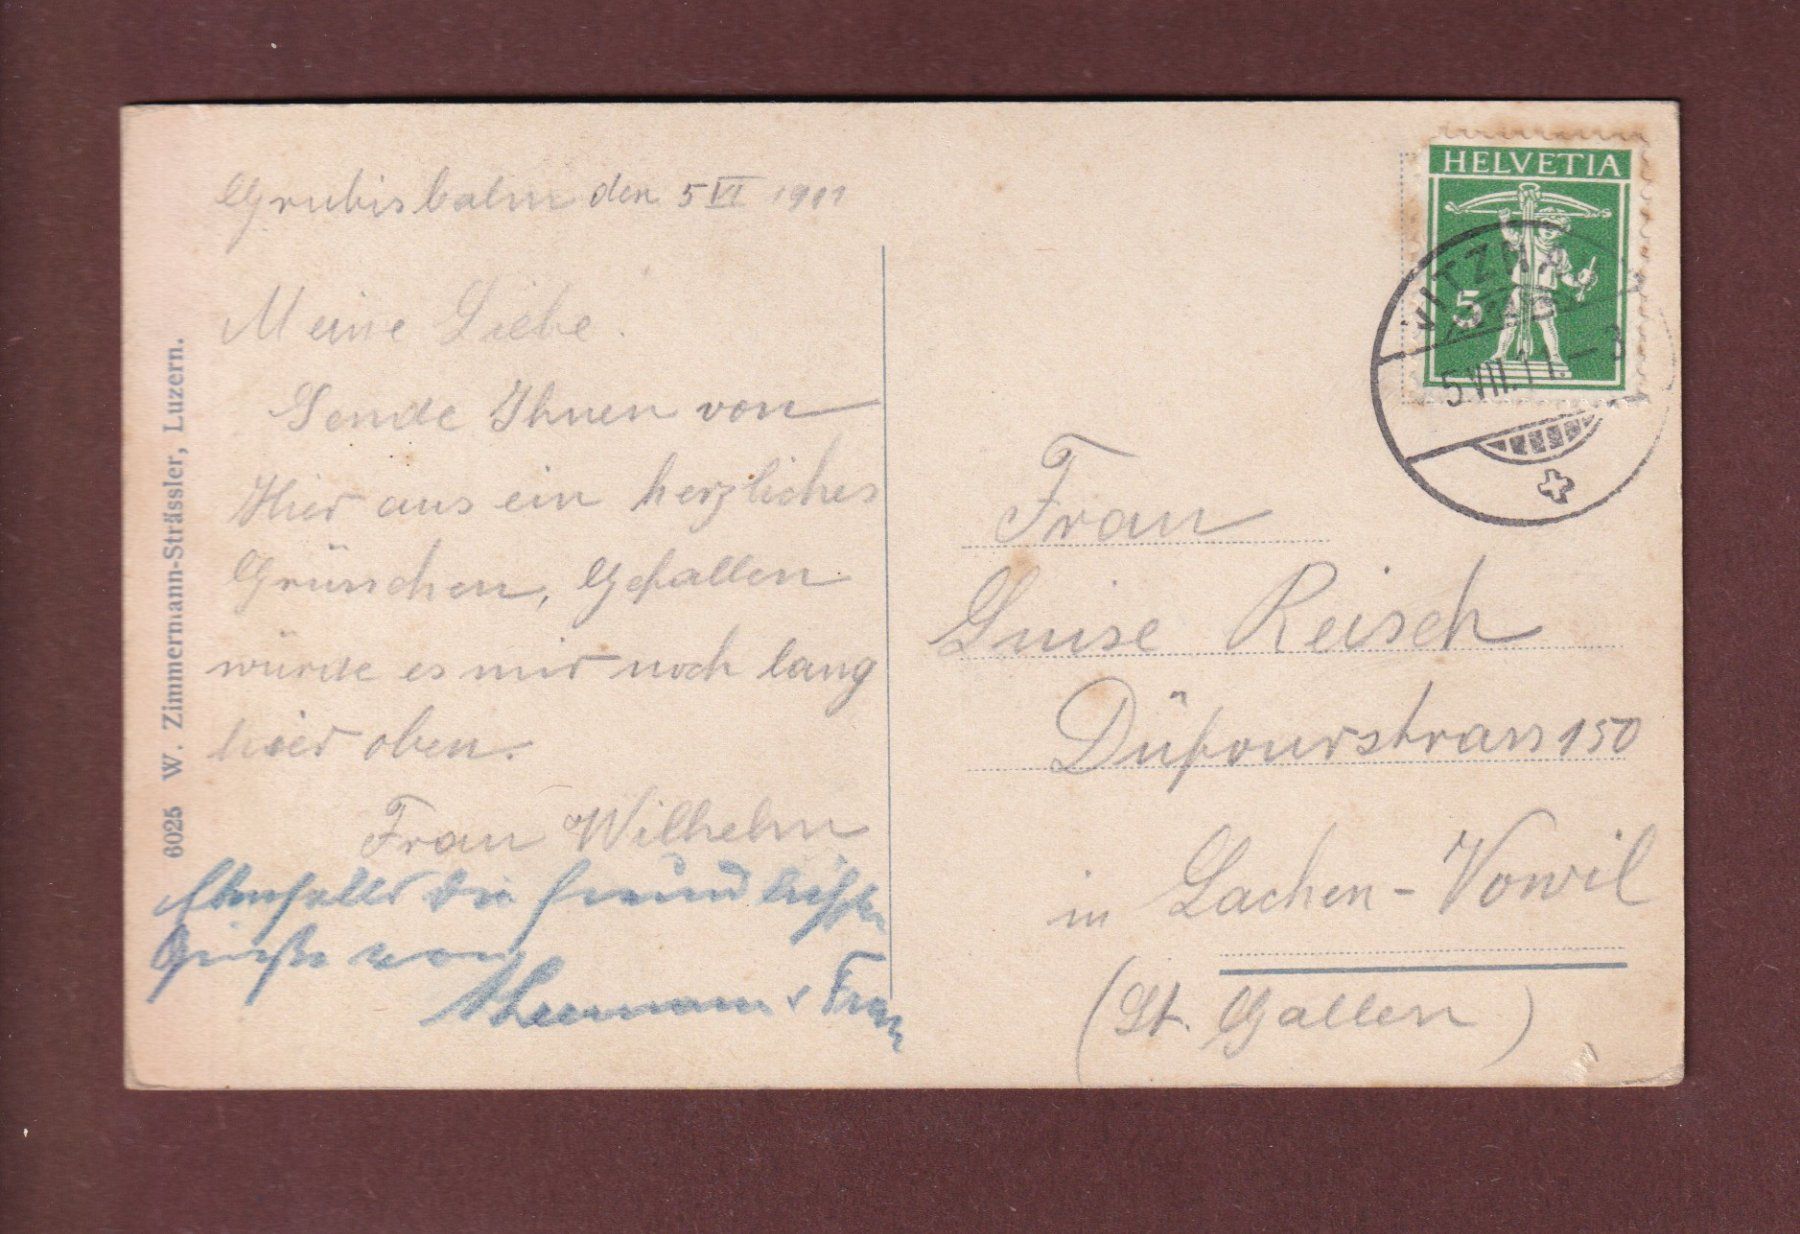 Grubisbalm den 5 VI 1911
Meine Liebe.
Sende Ihnen von
Hier aus ein herzliches
Grüsschen, Gefallen
würde es mir noch lang
hier oben.
Frau Wilhelm
Ebenfalls die freundlichsten
Grüsse von
& Frau
6025 W. Zimmermann-Strässler, Luzern.
HELVETIA
5
VITZNAU
5.VII.11.–3
Frau
Luise Reisch
Düfourstrass 150
in Lachen-Vonwil
(St. Gallen)